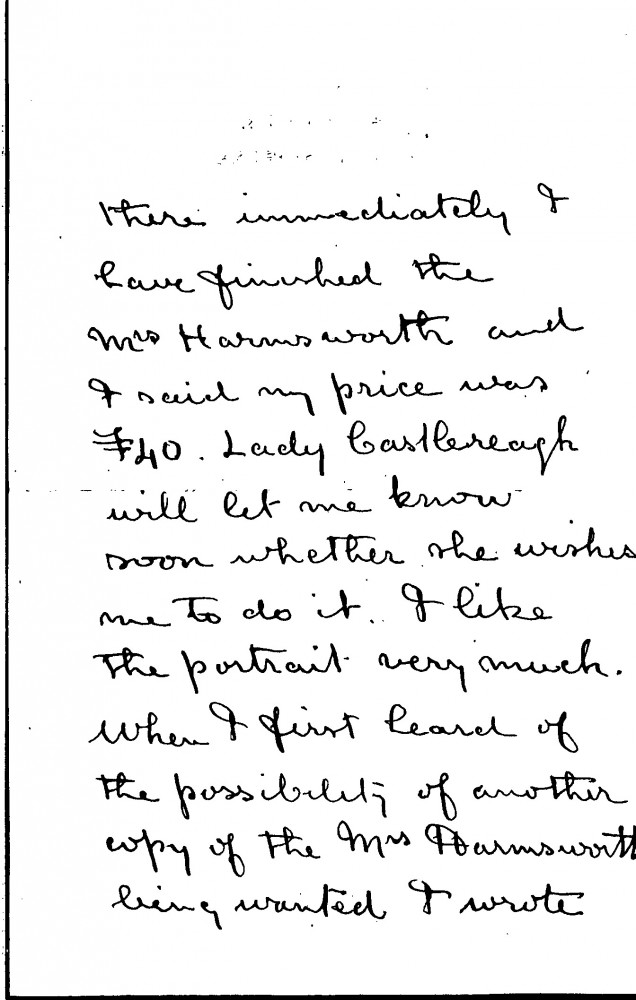 there immediately I
have finished the
Mrs Harmsworth and
I said my price was
£40. Lady Castlereagh
will let me know
soon whether she wishes
me to do it. I like
the portrait very much.
When I first heard of
the possibility of another
copy of the Mrs Harmsworth
being wanted I wrote